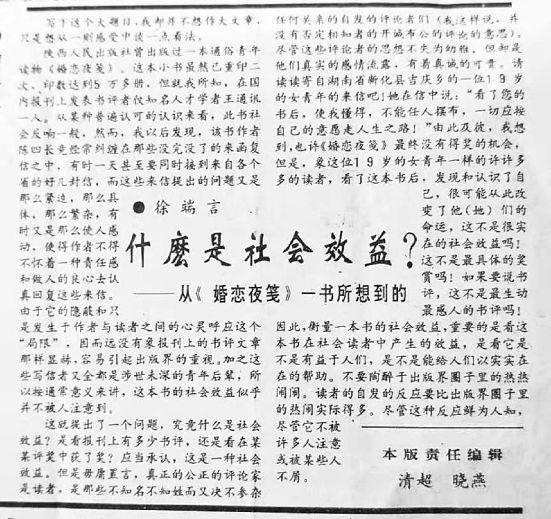 写下这个大题目，我却并不想作大文章，
只是想从一则感受中谈一点看法。
陕西人民出版社曾出版过一本通俗青年
读物《婚恋夜笺》。这本小书虽然已重印二
次、印数达到5万多册，但就我所知，在国
内报刊上发表书评者仅知名人才学者王通讯
一人。从某种普遍认可的认识来看，此书社
会反响一般，然而，我以后发现，该书作者
陈四长竟经常纠缠在那些没完没了的来函复
信之中，有时一天甚至要同时接到来自各个
省的好几封信，而这些来信提出的问题又是
那么紧迫，那么具
体，那么繁杂，有
时又是那么使人感
动，使得作者不得
不怀着一种责任感
和做人的良心去认
真回复这些来信。
由于它的隐蔽和只
是发生于作者与读者之间的心灵呼应这个
“局限”，因而远没有象报刊上的书评文章
那样显赫，容易引起出版界的重视。加之这
些写信者又全都是涉世未深的青年后辈，所
以按通常意义来讲，这本书的社会效益似乎
并不被人注意到。
这就提出了一个问题，究竟什么是社会
效益？是看报刊上有多少书评，还是看在某
某评奖中获了奖？应当承认，这是一种社会
效益。但是毋庸置言，真正的公正的评论家
是读者，是那些不知名不知姓而又决不参杂
●徐端言
什麽是社会效益？
——从《婚恋夜笺》一书所想到的
任何关系的自发的评论者们（我这样说，并
没有否定相知者的开诚布公的评论的意思）。
尽管这些评论者的思想不失为幼稚，但却是
他们真实的感情流露，有着真诚的可贵。请
读读寄自湖南省新化县吉庆乡的一位19岁
的女青年的来信吧！她在信中说：“看了您的
书后，使我懂得，不能任人摆布，一切应按
自己的意愿走人生之路！”由此及彼，我想
到，也许《婚恋夜笺》最终没有得奖的机会，
但是，象这位19岁的女青年一样的许许多
多的读者，看了这本书后，发现和认识了自
己，很可能从此改
变了他（她）们的
命运，这不是很实
在的社会效益吗！
这不是最具体的奖
赏吗！如果要说书
评，这不是最生动
最感人的书评吗！
因此，衡量一本书的社会效益，重要的是看这
本书在社会读者中产生的效益，是看它是
不是有益于人们，是不是能给人们以实实在
在的帮助。不要陶醉于出版界圈子里的热热
闹闹。读者的自发的反应要比出版界圈子里
的热闹实际得多。尽管这种反应鲜为人知，
尽管它不被
许多人注意
或被某些人
不屑。
本版责任编辑
清超 晓燕